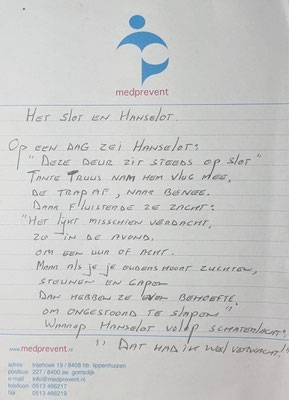 medprevent
Het slot en Hanselot.
Op een dag zei Hanselot:
"Deze deur zit steeds op slot"
Tante Truus nam hem vlug mee,
de trap af, naar benee.
Daar fluisterde ze zacht:
"Het lijkt misschien verdacht,
zo in de avond,
om een uur of acht.
Maar als je je ouders hoort zuchten,
steunen en gapen
Dan hebben ze even behoefte,
om ongestoord te slapen"
Waarop Hanselot volop schaterlacht:
"Dat had ik wel verwacht!"
www.medprevent.nl
adres Injehoek 19 / 8408 hb lippenhuizen
postbus 227 / 8400 ae gorredijk
e-mail info@medprevent.nl
telefoon 0513 466217
fax 0513 466219